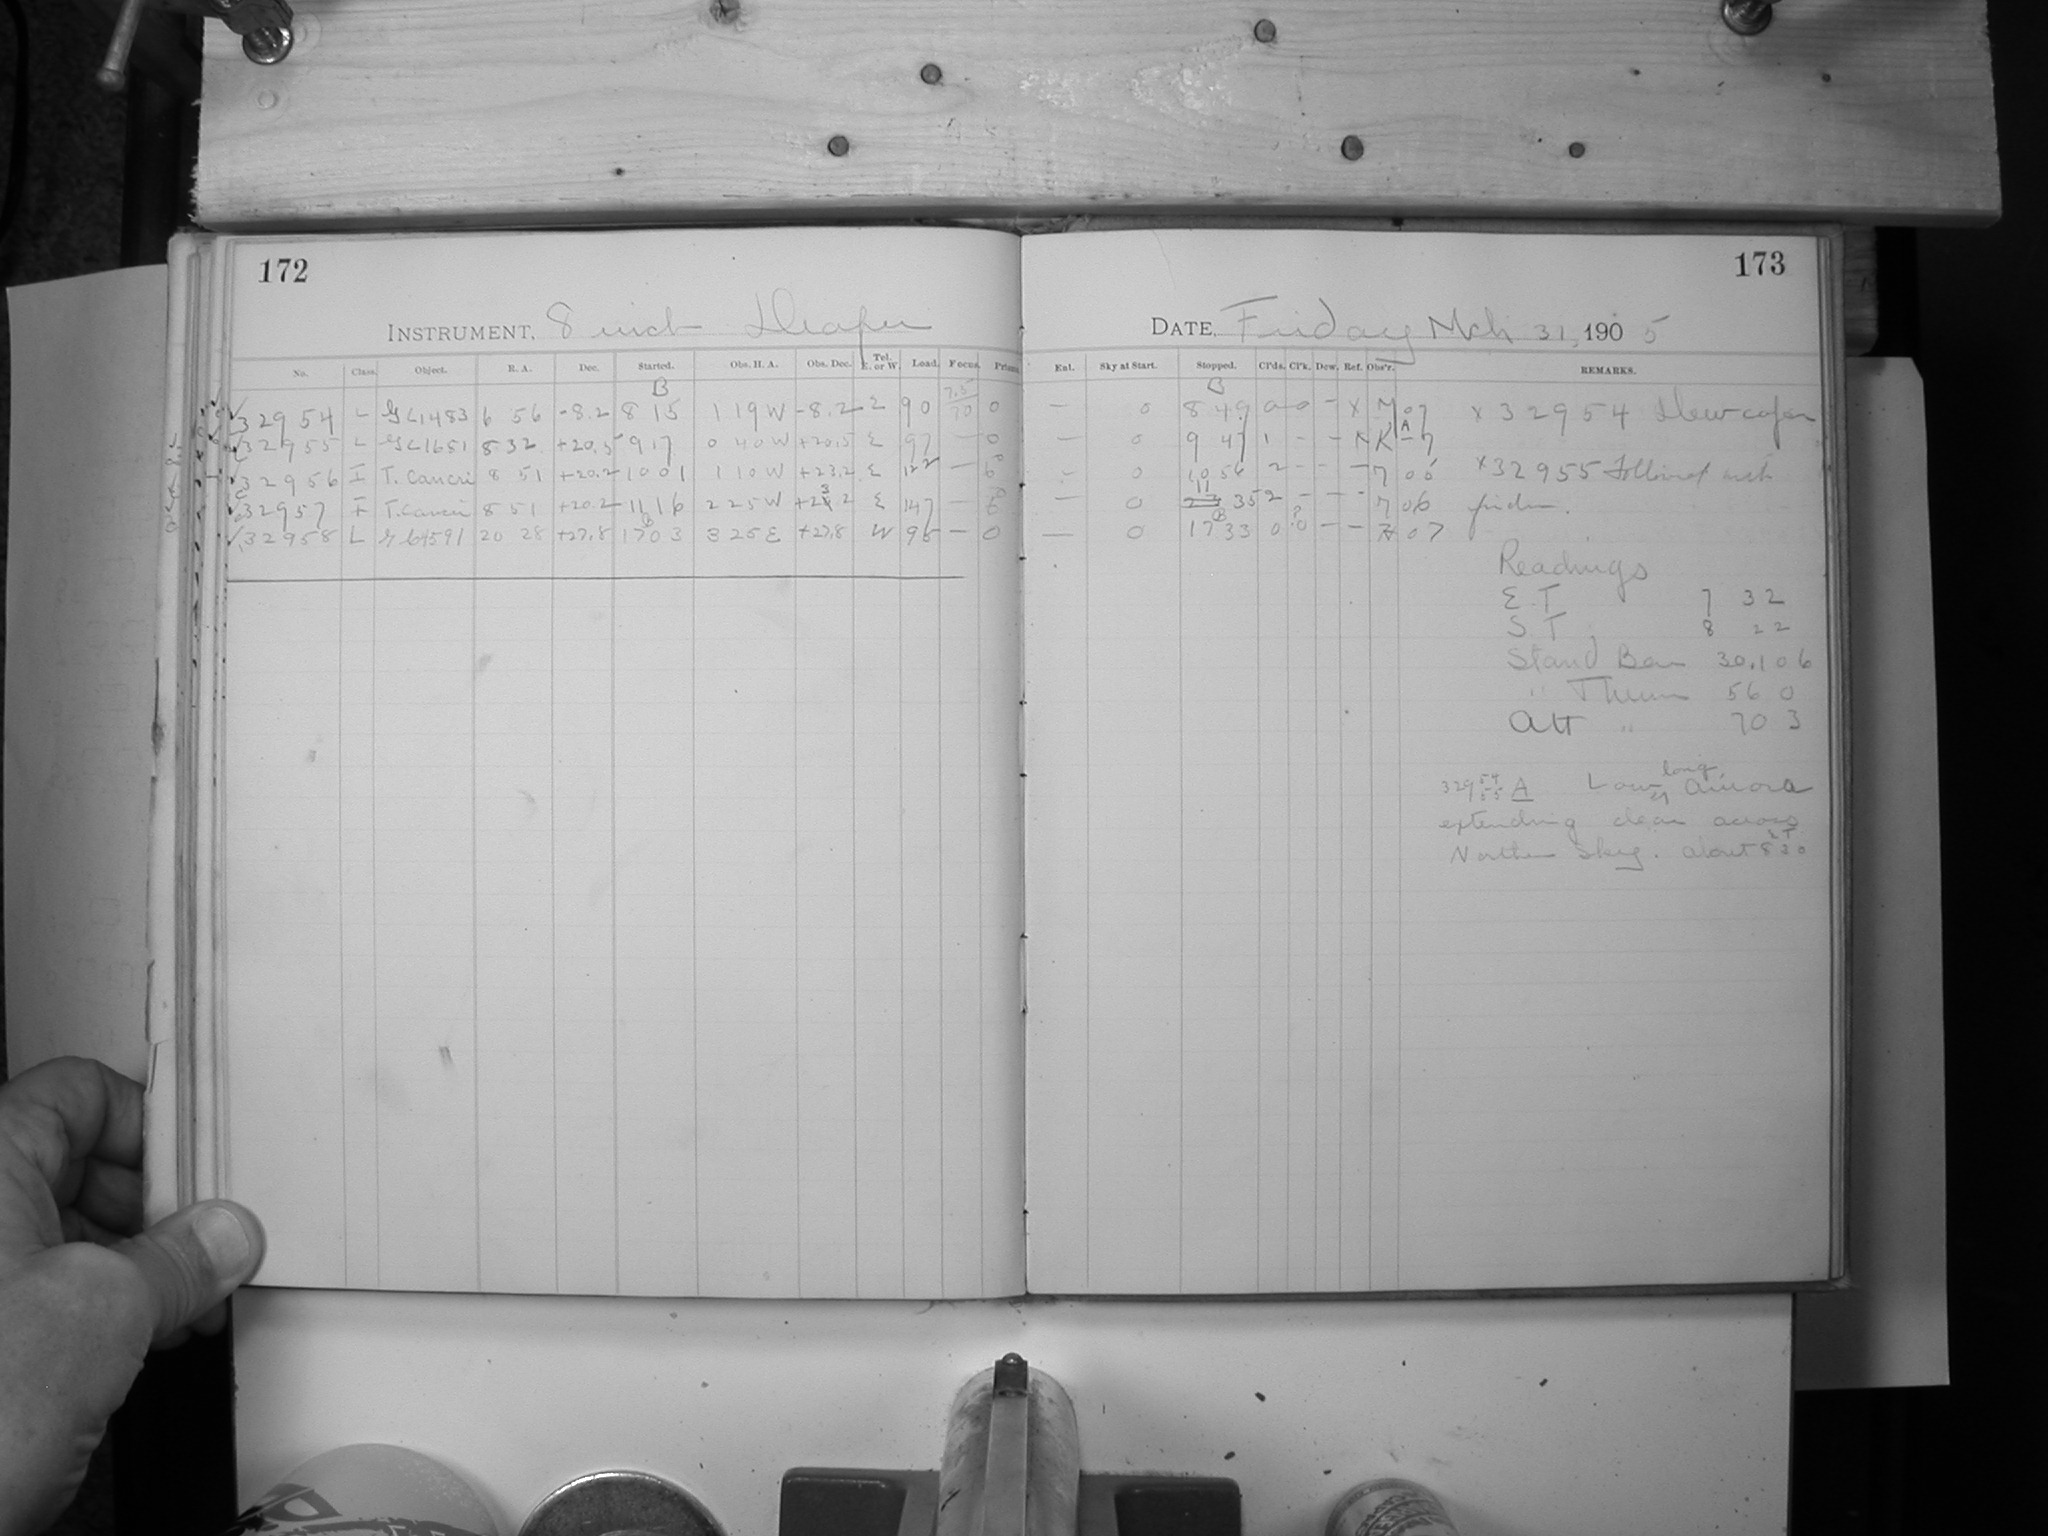 172
INSTRUMENT, 8 inch Draper
No. Class. Object. R. A. Dec. Started. Obs. H. A. Obs. Dec. Tel. E. or W. Load. Focus. Prisms.
B
32954 L GC1483 6 56 -8.2 8 15 1 19 W -8.2 E 90 7.5/70 0
32955 L GC1681 8 32 +20.5 9 17 0 40 W +20.5 E 97 — 0
32956 I T. Cancri 8 51 +20.2 10 01 1 10 W +23.2 E 122 —
32957 I T. Cancri 8 51 +20.2 11 16 2 25 W E 147 —
32958 L 20 28 +27.8 17 03 3 25 E +27.8 W — 0
173
DATE, Friday Mch 31, 1905
Ent. Sky at Start. Stopped. Cl'ds. Cl'k. Dew. Ref. Obs'r. REMARKS.
B
— 0 8 49 0 0 - x 07 x 32954 New
— 0 9 47 1 - - x K - 7
- 0 10 56 2 - - - 7 06 x32955 Followed with
- 0 11 35 2 - - - 7 06 finder.
— 0 17 33 0 0 - - 7 07
Readings
E T 7 32
S T 8 22
Stand Bar 30.106
" Therm 56 0
Att " 70 3
A Low long Aurora
extending clear across
Northern Sky. about 8 30